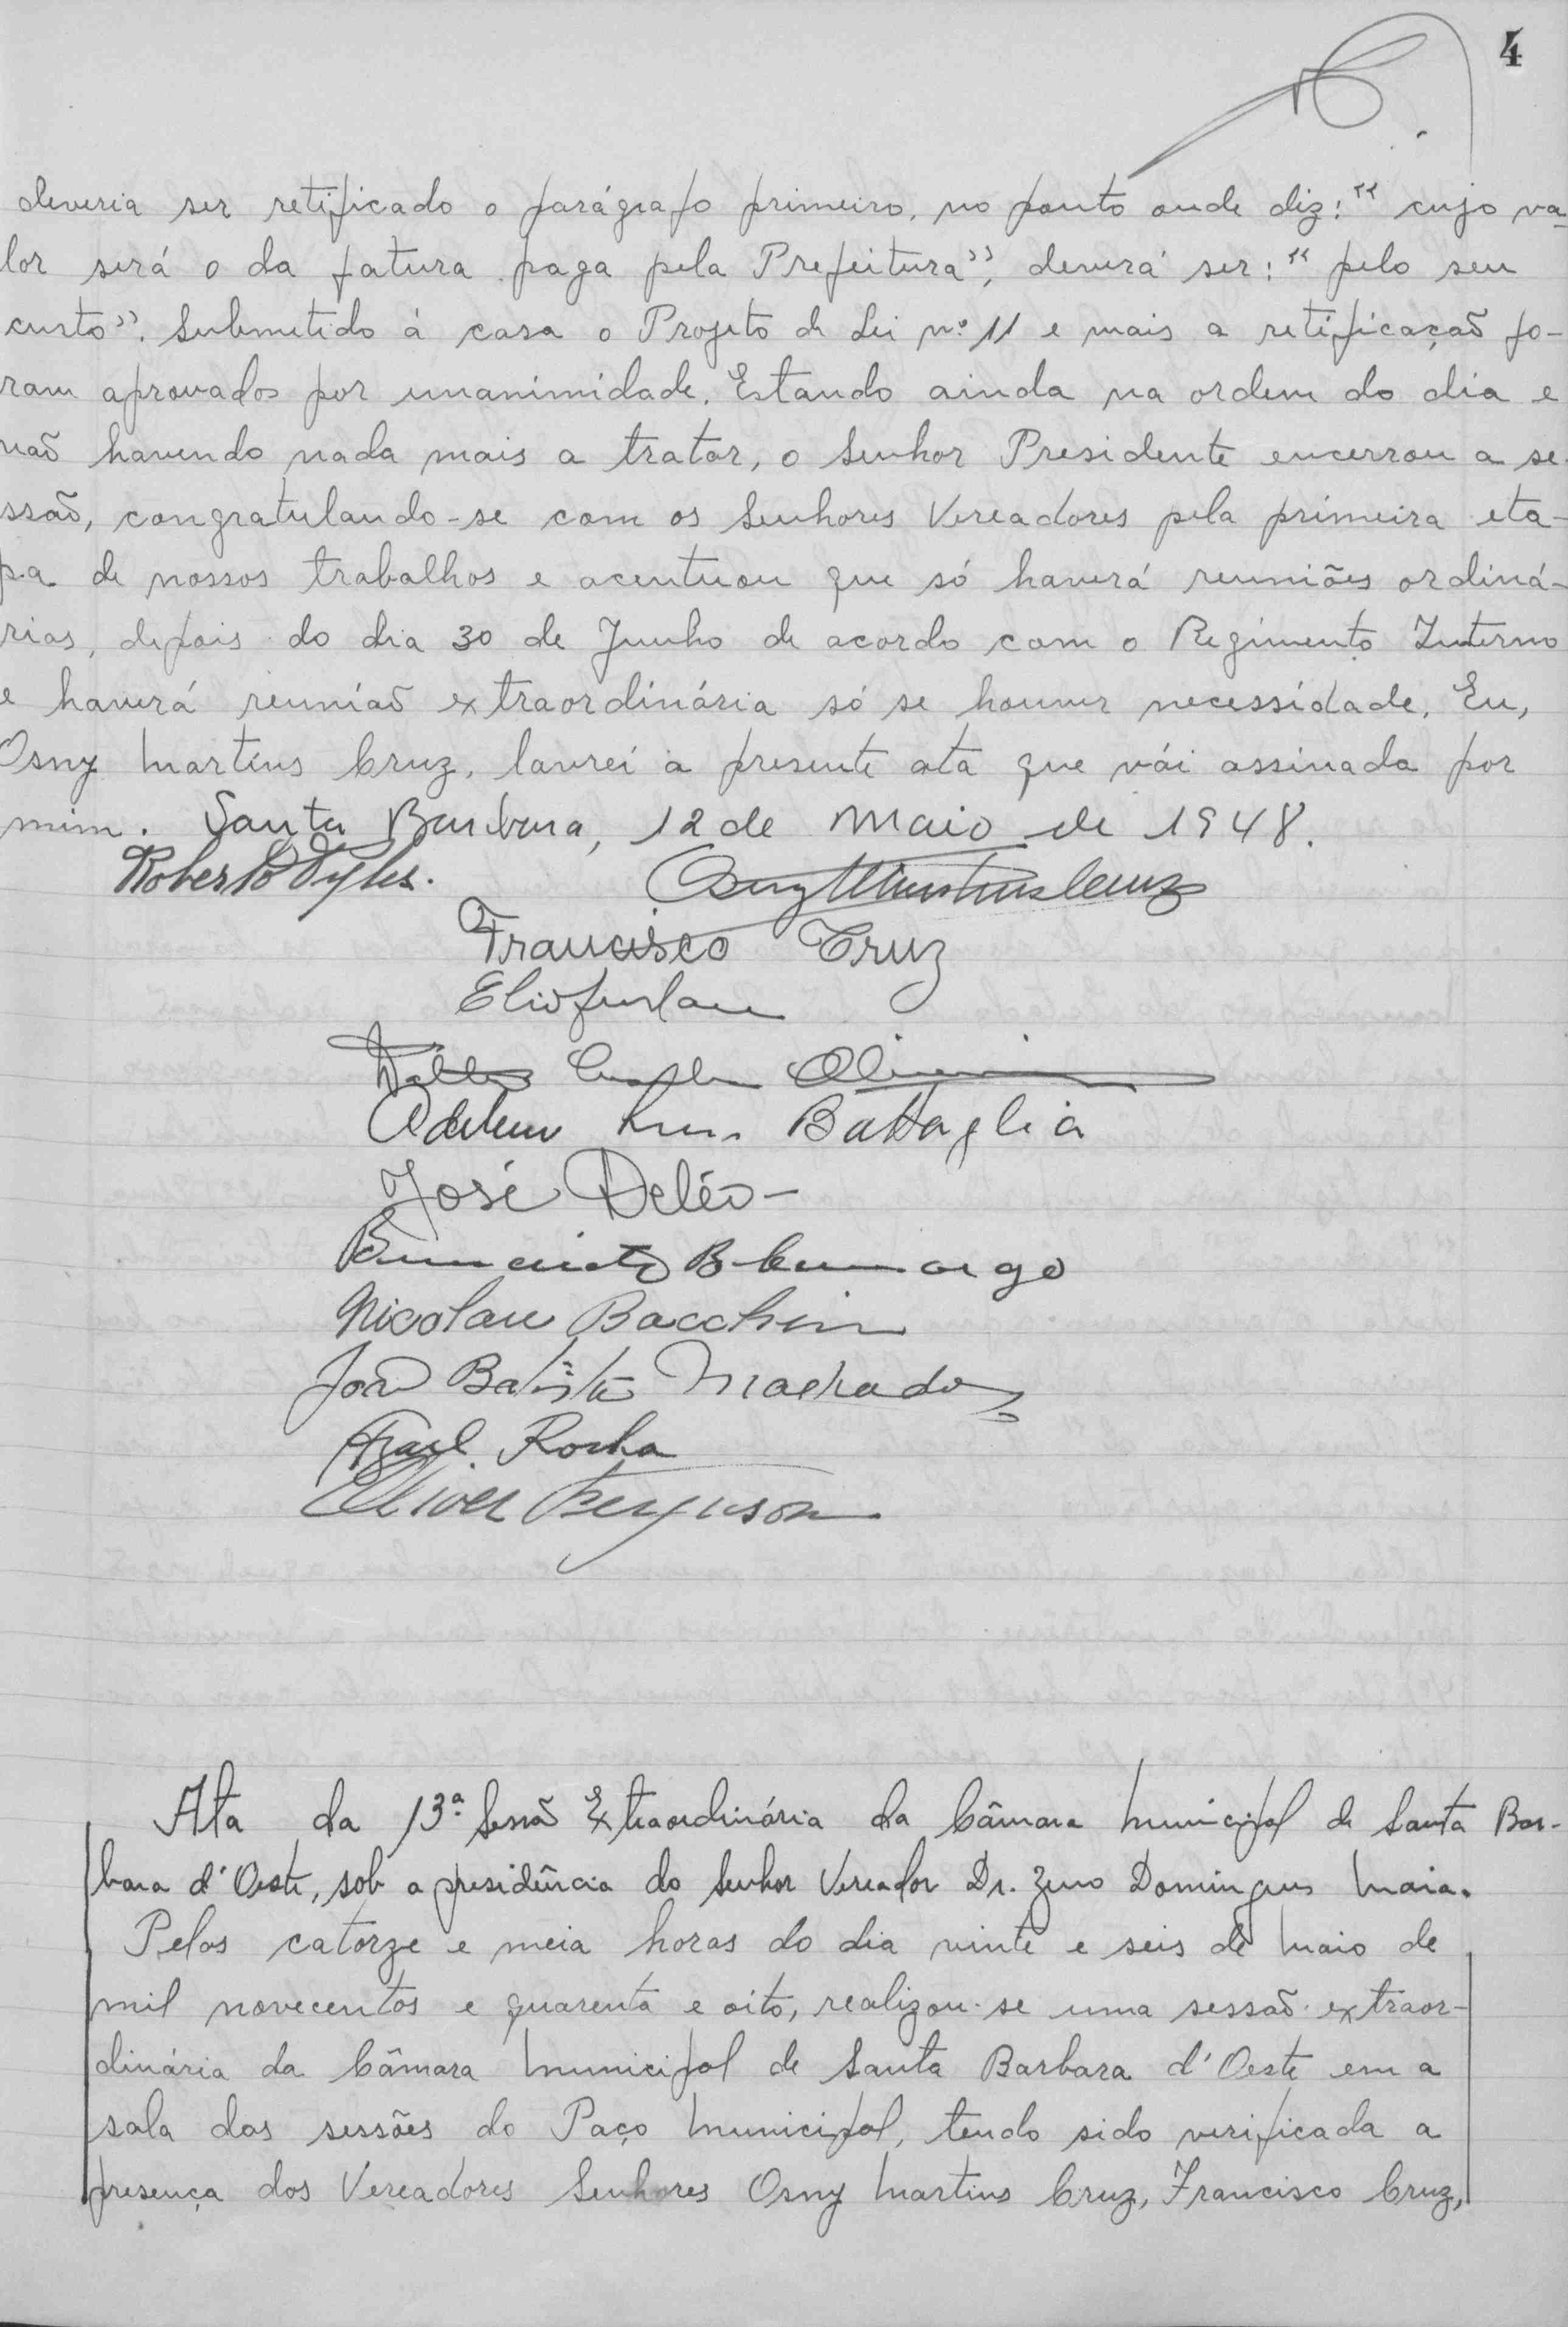 4
deveria ser retificado o parágrafo primeiro, no ponto onde diz: "cujo va-
lor será o da fatura paga pela Prefeitura", deverá ser: "pelo seu
custo". Submetido á casa o Projeto de Lei nº 11 e mais a retificação fo-
ram aprovados por unanimidade. Estando ainda na ordem do dia e
não havendo nada mais a tratar, o Senhor Presidente encerrou a se-
ssão, congratulando-se com os Senhores Vereadores pela primeira eta-
pa de nossos trabalhos e acentuou que só haverá reuniões ordiná-
rias, depois do dia 30 de Junho de acordo com o Regimento Interno
e haverá reunião extraordinária só se houver necessidade. Eu,
Osny Martins Cruz, lavrei a presente ata que vái assinada por
mim. Santa Barbara, 12 de Maio de 1948.
Roberto Pyles. Osny Martins Cruz
Francisco Cruz
Elio Furlan
Oliveira
Battaglia
José Deléo-
Benedicto B Camargo
Nicolau Bacchin
João Batista Machado
Rocha
Oliver Ferguson
Ata da 13ª Sessão Extraordinária da Câmara Municipal de Santa Bar-
bara d'Oeste, sob a presidência do Senhor Vereador Dr. Zeno Domingues Maia.
Pelas catorze e meia horas do dia vinte e seis de Maio de
mil novecentos e quarenta e oito, realizou-se uma sessão extraor-
dinária da Câmara Municipal de Santa Barbara d'Oeste em a
sala das sessões do Paço Municipal, tendo sido verificada a
presença dos Vereadores Senhores Osny Martins Cruz, Francisco Cruz,